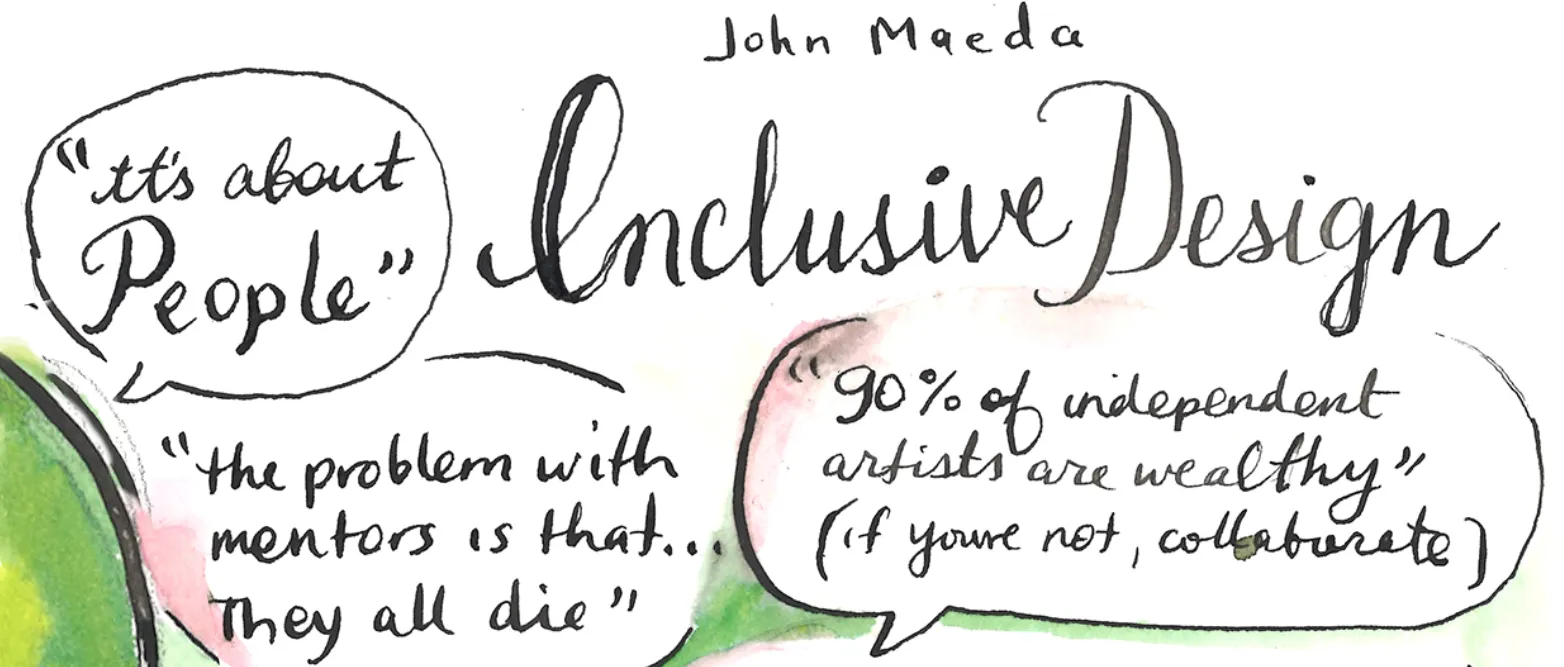 John Maeda
Inclusive Design
"it's about
People"
"the problem with
mentors is that...
They all die"
"90% of independent
artists are wealthy"
(if you're not, collaborate)